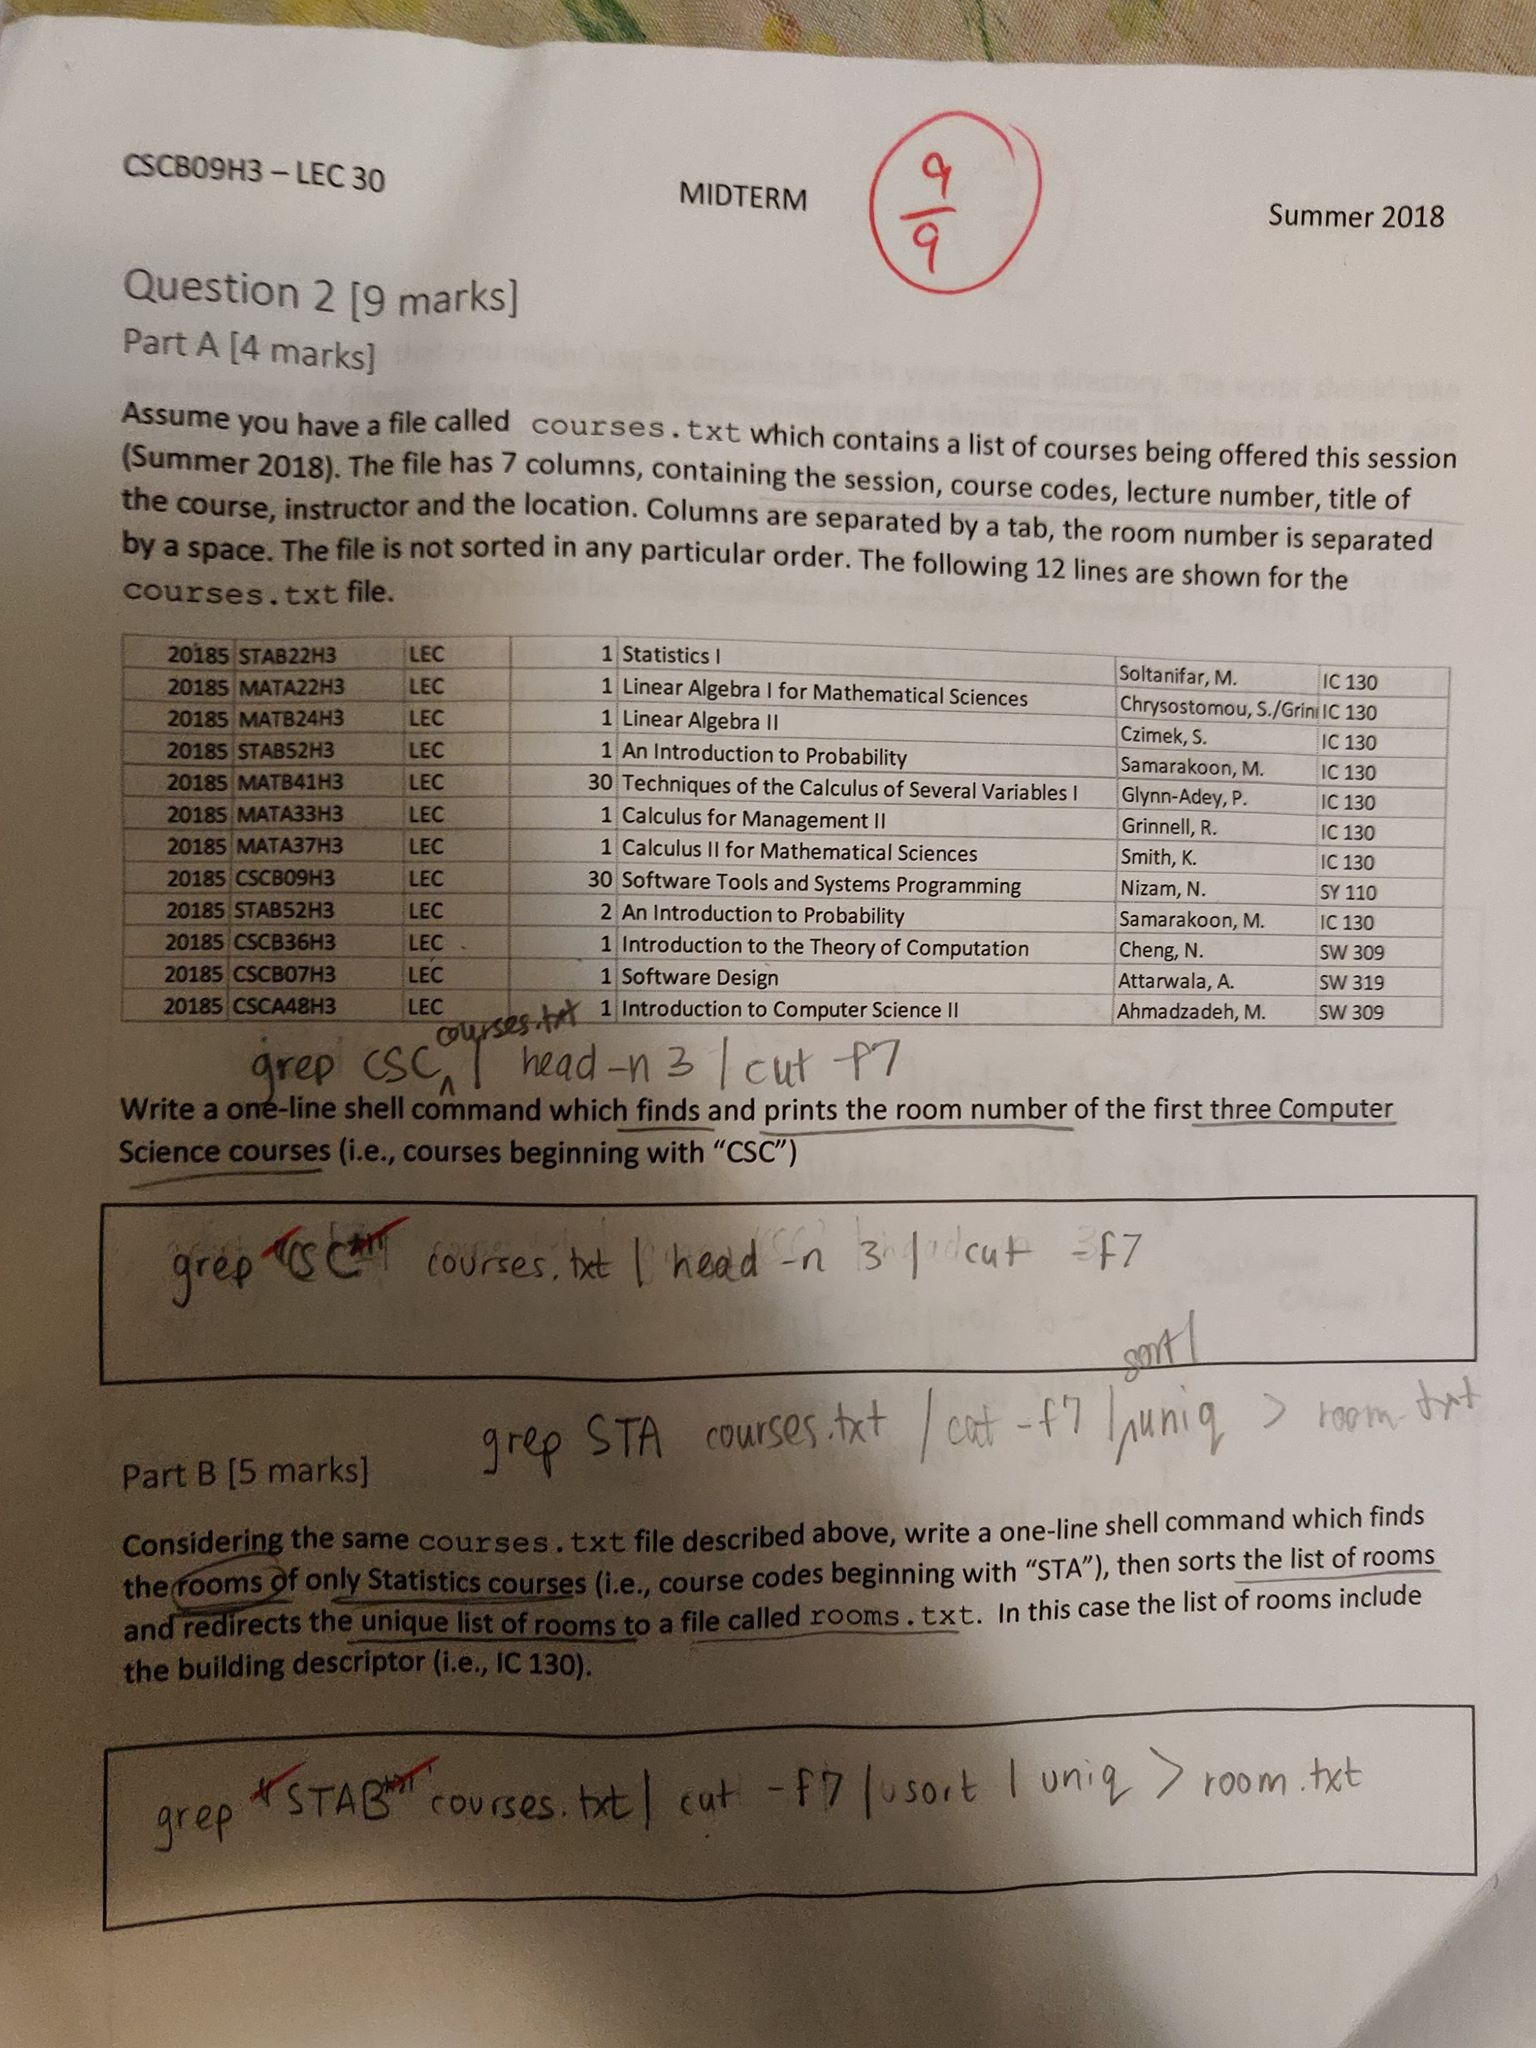 CSCB09H3 – LEC 30
MIDTERM
9
9
Summer 2018
Question 2 [9 marks]
Part A [4 marks]
Assume you have a file called courses.txt which contains a list of courses being offered this session
(Summer 2018). The file has 7 columns, containing the session, course codes, lecture number, title of
the course, instructor and the location. Columns are separated by a tab, the room number is separated
by a space. The file is not sorted in any particular order. The following 12 lines are shown for the
courses.txt file.
20185 STAB22H3 LEC 1 Statistics I Soltanifar, M. IC 130
20185 MATA22H3 LEC 1 Linear Algebra I for Mathematical Sciences Chrysostomou, S./Grin IC 130
20185 MATB24H3 LEC 1 Linear Algebra II Czimek, S. IC 130
20185 STAB52H3 LEC 1 An Introduction to Probability Samarakoon, M. IC 130
20185 MATB41H3 LEC 30 Techniques of the Calculus of Several Variables I Glynn-Adey, P. IC 130
20185 MATA33H3 LEC 1 Calculus for Management II Grinnell, R. IC 130
20185 MATA37H3 LEC 1 Calculus II for Mathematical Sciences Smith, K. IC 130
20185 CSCB09H3 LEC 30 Software Tools and Systems Programming Nizam, N. SY 110
20185 STAB52H3 LEC 2 An Introduction to Probability Samarakoon, M. IC 130
20185 CSCB36H3 LEC 1 Introduction to the Theory of Computation Cheng, N. SW 309
20185 CSCB07H3 LEC 1 Software Design Attarwala, A. SW 319
20185 CSCA48H3 LEC 1 Introduction to Computer Science II Ahmadzadeh, M. SW 309
courses.txt
grep CSC | head -n 3 | cut -f7
Write a one-line shell command which finds and prints the room number of the first three Computer
Science courses (i.e., courses beginning with “CSC”)
grep CSC courses.txt | head -n 3 | cut -f7
sort |
grep STA courses.txt | cat -f7 | uniq > room.txt
Part B [5 marks]
Considering the same courses.txt file described above, write a one-line shell command which finds
the rooms of only Statistics courses (i.e., course codes beginning with “STA”), then sorts the list of rooms
and redirects the unique list of rooms to a file called rooms.txt. In this case the list of rooms include
the building descriptor (i.e., IC 130).
grep STAB courses.txt | cut -f7 | sort | uniq > room.txt